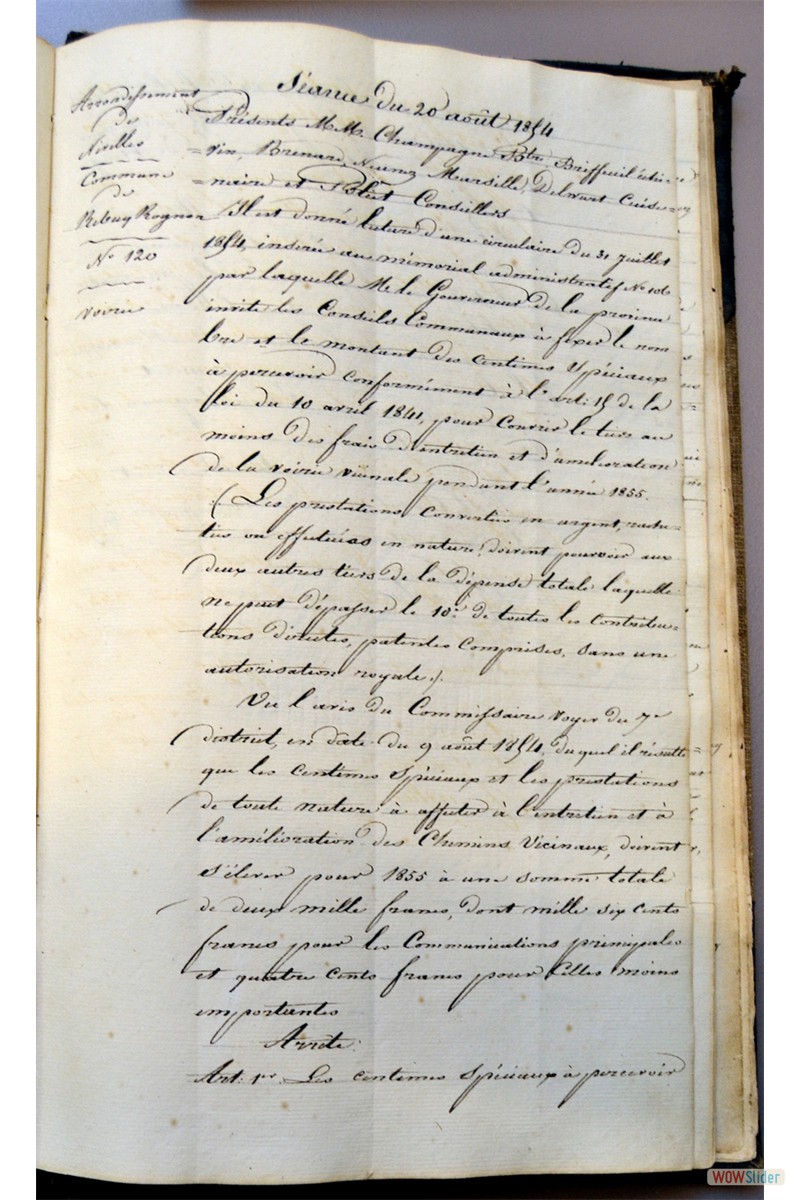 Séance du 20 août 1854
Arrondissement
de
Nivelles
Commune
de
Rebecq Rognon
N° 120
voirie
Présents M.M. Champagne Btre, Briffeuil éche=
=vin, Brenart, Marsille, Delwart Cuise=
=naire et Conseillers
Il est donné lecture d'une circulaire du 31 juillet
1854, insérée au mémorial administratif N° 106
par laquelle M. le Gouverneur de la province
invite les Conseils Communaux à fixer le nom
bre et le montant des centimes Spéciaux
à percevoir conformément à l'art: 15 de la
loi du 10 avril 1841, pour Couvrir le tiers au
moins des frais d'entretien et d'amélioration
de la voirie vicinale pendant l'année 1855.
(Les prestations Converties en argent, rache=
tées ou effectuées en nature, doivent pourvoir aux
deux autres tiers de la dépense totale laquelle
ne peut dépasser le 10e de toutes les Contribu=
tions directes, patentes Comprises, sans une
autorisation royale.)
Vu l'avis du Commissaire voyer du 7e
district, en date du 9 août 1854, duquel il résulte
que les Centimes Spéciaux et les prestations
de toute nature à affecter à l'entretien et à
l'amélioration des Chemins Vicinaux, doivent
S'élever pour 1855 à une somme totale
de deux mille francs, dont mille six cents
francs pour les Communications principales
et quatre cents francs pour Celles moins
importantes
Arrête:
Art: 1er Les centimes Spéciaux à percevoir
WOWSlider